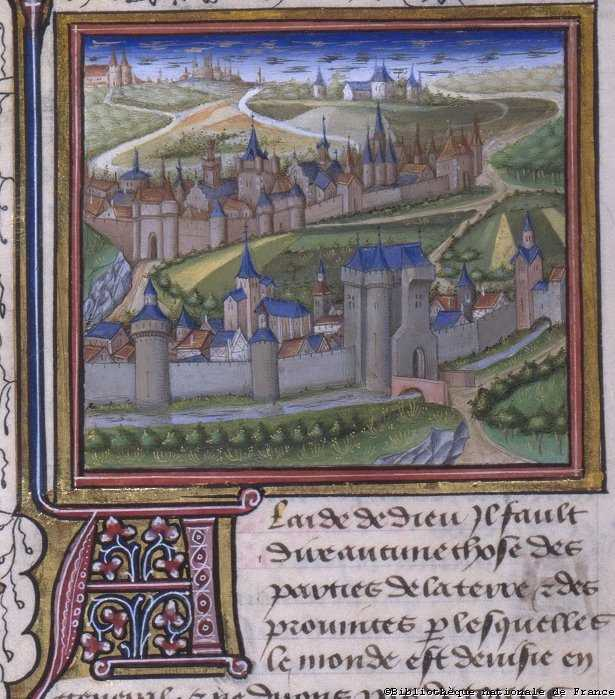 A laide de dieu Jl fault
dire aucune chose des
parties de la terre ⁊ des
prouinces ꝑ lesquelles
le monde est deuisie en
general
©Bibliothèque nationale de France